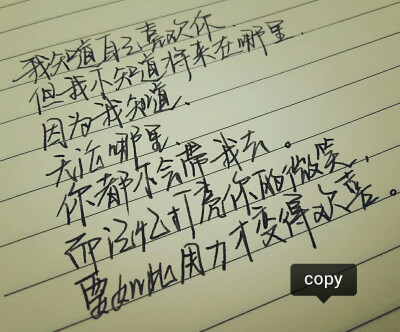 我知道自己喜欢你.
但我不知道将来在哪里.
因为我知道、
无论哪里、
你都不会带我去。
而记忆打亮你的微笑、
要如此用力才变得欢喜。
copy